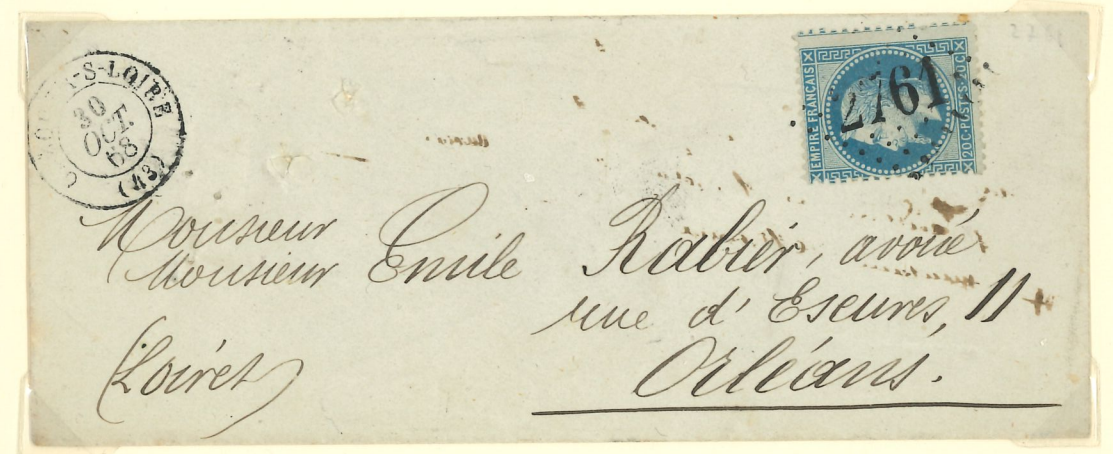 -S-LOIRE
30
OCT.
68
(43)
EMPIRE FRANCAIS
20C-POSTES-20C
2761
Monsieur
Monsieur Emile Rabier, avoué
rue d'Escures, 11
(Loiret)
Orléans.